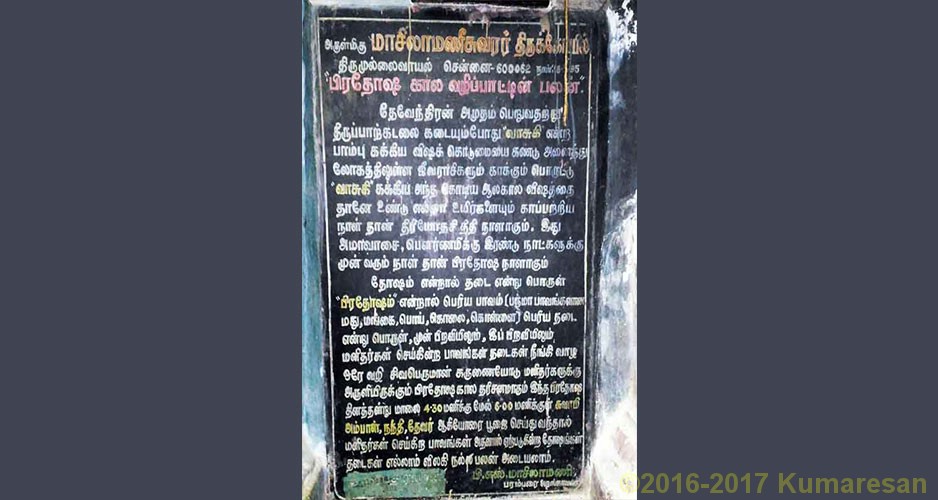 அருள்மிகு மாசிலாமணீசுவரர் திருக்கோயில்
திருமுல்லைவாயல் சென்னை-600062
"பிரதோஷ கால வழிப்பாட்டின் பலன்".
தேவேந்திரன் அமுதம் பெறுவதற்கு
திருப்பாற்கடலை கடையும்போது "வாசுகி" என்ற
பாம்பு கக்கிய விஷக் கொடுமையை கண்டு
லோகத்திலுள்ள ஜீவராசிகளும் காக்கும் பொருட்டு
"வாசுகி" கக்கிய அந்த கொடிய ஆலகால விஷத்தை
தானே உண்டு எல்லா உயிர்களையும் காப்பற்றிய
நாள் தான் திரியோதசி திதி நாளாகும். இது
அமாவாசை, பௌர்ணமிக்கு இரண்டு நாட்களுக்கு
முன் வரும் நாள் தான் பிரதோஷ நாளாகும்
தோஷம் என்றால் தடை என்று பொருள்
"பிரதோஷம்" என்றால் பெரிய பாவம்
மது, மங்கை, பொய், கொலை, கொள்ளை) பெரிய தடை
என்று பொருள், முன் பிறவியிலும், இப் பிறவியிலும்,
மனிதர்கள் செய்கின்ற பாவங்கள் தடைகள் நீங்கி வாழ
ஒரே வழி சிவபெருமான் கருணையோடு மனிதர்களுக்கு
அருளியிருக்கும் பிரதோஷ கால தரிசனமாகும் இந்த பிரதோஷ
தினத்தன்று மாலை 4-30 மணிக்கு மேல் 6-00 மணிக்குள் சுவாமி
அம்பாள், நந்தி, தேவர் ஆகியோரை பூஜை செய்து வந்தால்
மனிதர்கள் செய்கிற பாவங்கள் அதனால் ஏற்படுகின்ற தோஷங்கள்
தடைகள் எல்லாம் விலகி நல்ல பலன் அடையலாம்.
பி.எஸ். மாசிலாமணி,
பரம்பரை
©2016-2017 Kumaresan